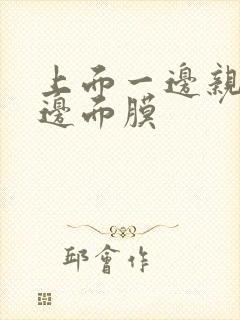 上而一邊親
邊而膜
邱會作